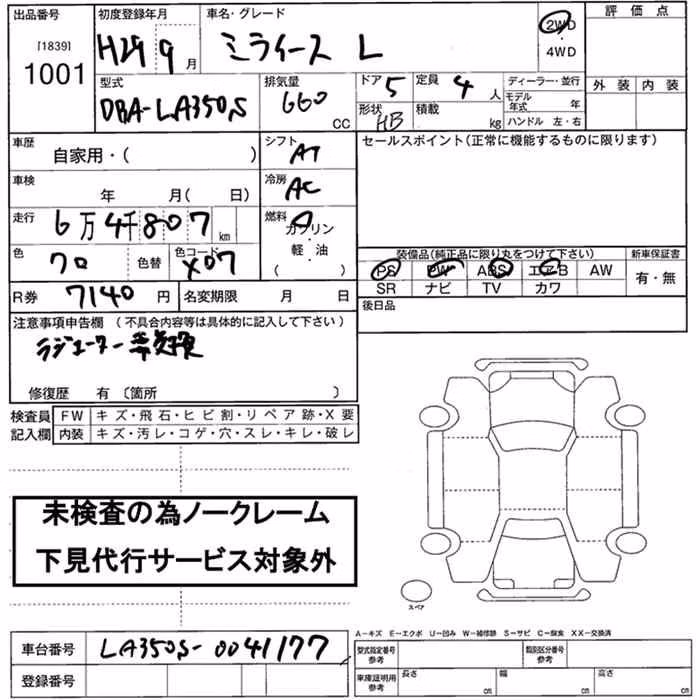 出品番号
[1839]
1001
初度登録年月
H29 9月
車名・グレード
ミライース L
2WD
・
4WD
評価点
外装 内装
型式
DBA-LA350S
排気量
660
CC
ドア 5
形状 HB
定員 4人
積載 kg
ディーラー・並行
モデル年式 年
ハンドル 左・右
車歴
自家用・( )
シフト
AT
セールスポイント(正常に機能するものに限ります)
車検
年 月( 日)
冷房
AC
走行
6万4千807 km
燃料
ガソリン
・
軽・油
( )
色
クロ
色替
色コード
X07
装備品(純正品に限り丸をつけて下さい)
PS PW ABS エアB AW
SR ナビ TV カワ
新車保証書
有・無
R券 7140円
名変期限 月 日
後日品
注意事項申告欄 (不具合内容等は具体的に記入して下さい)
ラジエーター
修復歴 有〔箇所 〕
検査員記入欄
FW キズ・飛石・ヒビ割・リペア跡・X要
内装 キズ・汚レ・コゲ・穴・スレ・キレ・破レ
未検査の為ノークレーム
下見代行サービス対象外
スペア
A-キズ E-エクボ U-凹み W-補修跡 S-サビ C-腐食 XX-交換済
車台番号 LA350S-0041177
登録番号
型式指定番号
参考
類別区分番号
参考
車庫証明用
参考
長さ cm
幅 cm
高さ cm